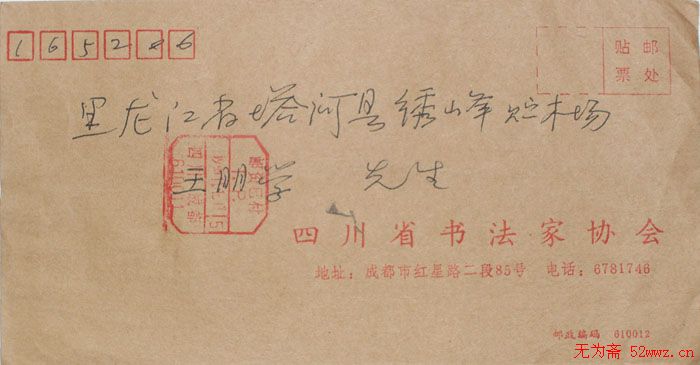 165206
贴邮
票处
黑龙江省塔河县绣峰贮木场
王朋学 先生
四川省书法家协会
地址：成都市红星路二段85号 电话：6781746
邮政编码 610012
无为斋 52wwz.cn